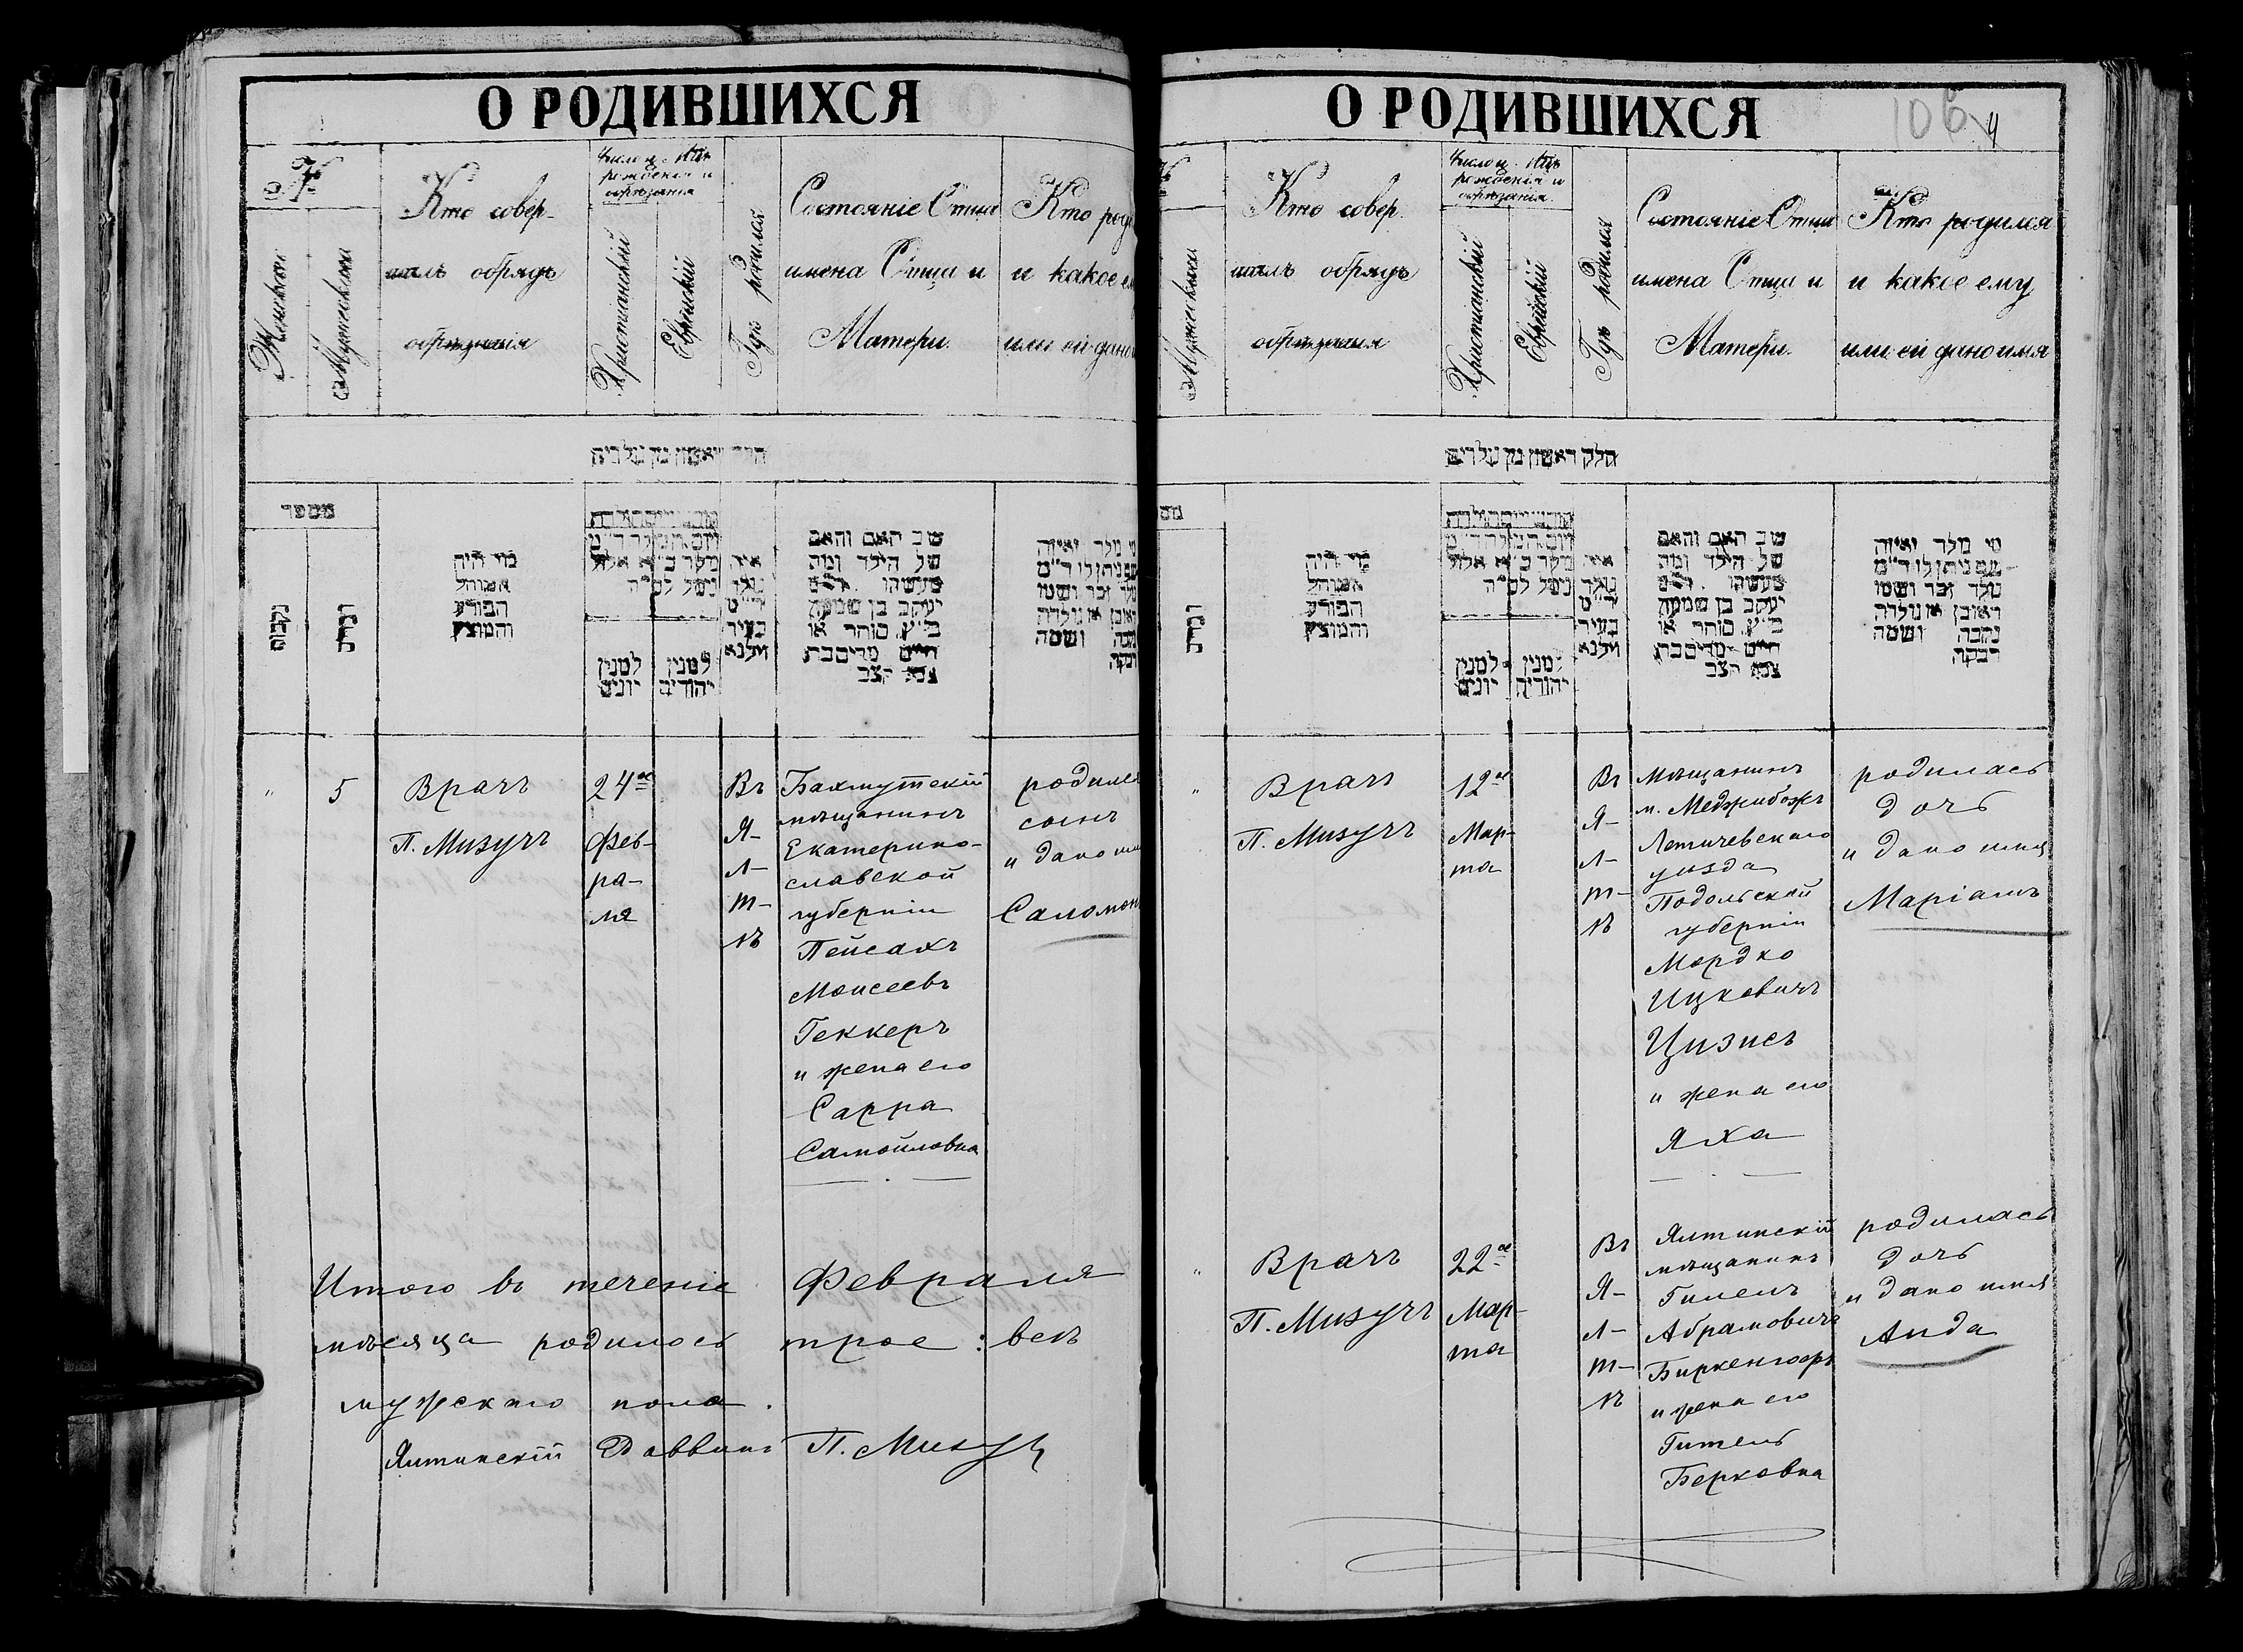 О РОДИВШИХСЯ
№
Женскій
Мужескій
Кто совер-
шалъ обрядъ
обрѣзанія
Число и
рожденія и
обрѣзанія
Христіанскій
Еврейскій
Гдѣ родился
Состояніе Отца
имена Отца и
Матери.
Кто роди
и какое е
или ей дано
חלק ראשון מן נולדים
מספר
נקבות
זכרים
מי היה
המוהל
הפורע
והמוצץ
למנין
יונים
למנין
יהודים
שם האב והאם
של הילד ומה
מעשהו
יעקב בן שמעון
סוחר או
" 5
Врачъ
П. Мизучъ
24го
фев-
ра-
ля
Въ
Я-
л-
т-
ѣ
Бахмутскій
мѣщанинъ
Екатерино-
славской
губерніи
Пейсахъ
Моисеевъ
Геккеръ
и жена его
Сарра
Самойловна
родился
сынъ
и дано имя
Саломон
Итого въ теченіе Февраля
мѣсяца родилось трое: всѣ
мужскаго пола.
Ялтинскій Раввинъ П. Мизучъ
О РОДИВШИХСЯ
106
4
Мужескій
Кто совер.
шалъ обрядъ
обрѣзанія
Число и
рожденія и
обрѣзанія.
Христіанскій
Еврейскій
Гдѣ родился
Состояніе Отца
имена Отца и
Матери.
Кто родился
и какое ему
или ей дано имя
חלק ראשון מן נולדים
זכרים
מי היה
המוהל
הפורע
והמוצץ
למנין
יונים
למנין
יהודים
שם האב והאם
של הילד ומה
מעשהו
יעקב בן שמעון
סוחר או
מי נולד ואיזה
שם ניתן לו
נולד זכר ושמו
ראובן או נולדה
נקבה ושמה
רבקה
"
Врачъ
П. Мизучъ
12го
Мар-
та
Въ
Я-
л-
т-
ѣ
мѣщанинъ
м. Меджибожъ
Летичевскаго
уѣзда
Подольской
губерніи
Мордко
Ицковичъ
Цизисъ
и жена его
Яха
родилась
дочь
и дано имя
Маріамъ
"
Врачъ
П. Мизучъ
22го
Мар-
та
Въ
Я-
л-
т-
ѣ
Ялтинскій
мѣщанинъ
Гилель
Абрамовичъ
Биркенгофъ
и жена его
Гитель
Берковна
родилась
дочь
и дано имя
Аида